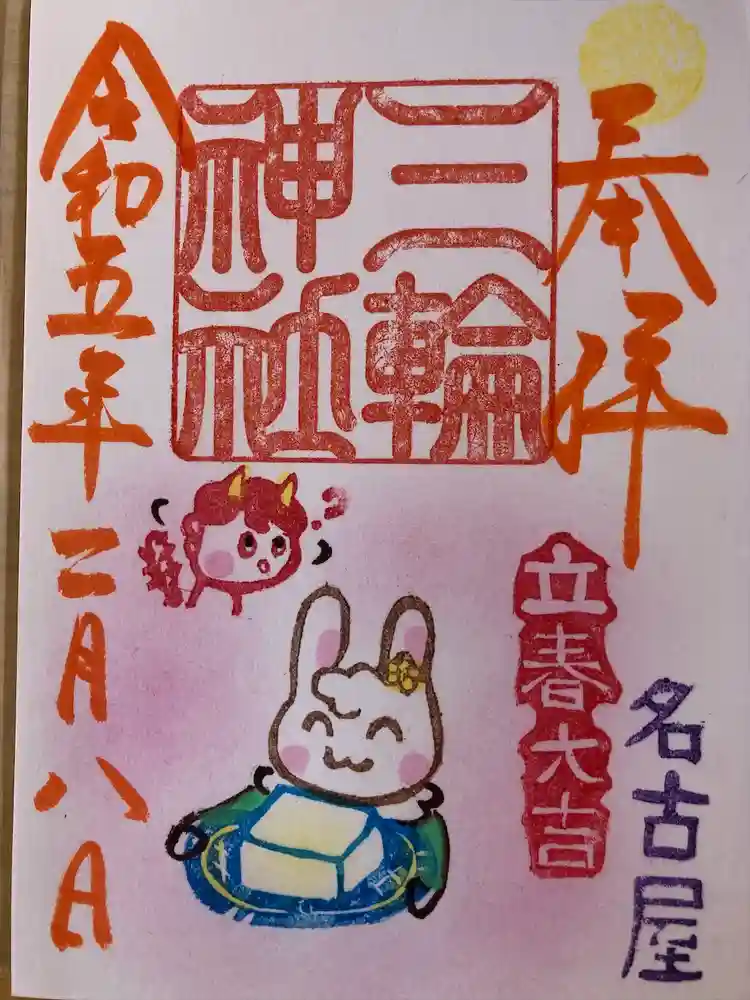 奉拝
三輪
神社
立春大吉
名古屋
令和五年二月八日